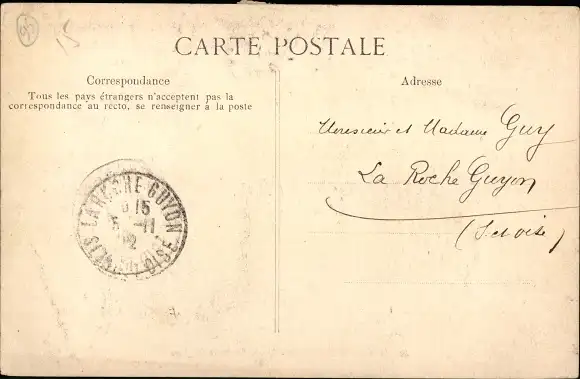 15
CARTE POSTALE
Correspondance
Tous les pays étrangers n'acceptent pas la
correspondance au recto, se renseigner à la poste
Adresse
Monsieur et Madame Guy
La Roche Guyon
(S et Oise)
LA ROCHE-GUYON
15
5 -11
12
SEINE-ET-OISE